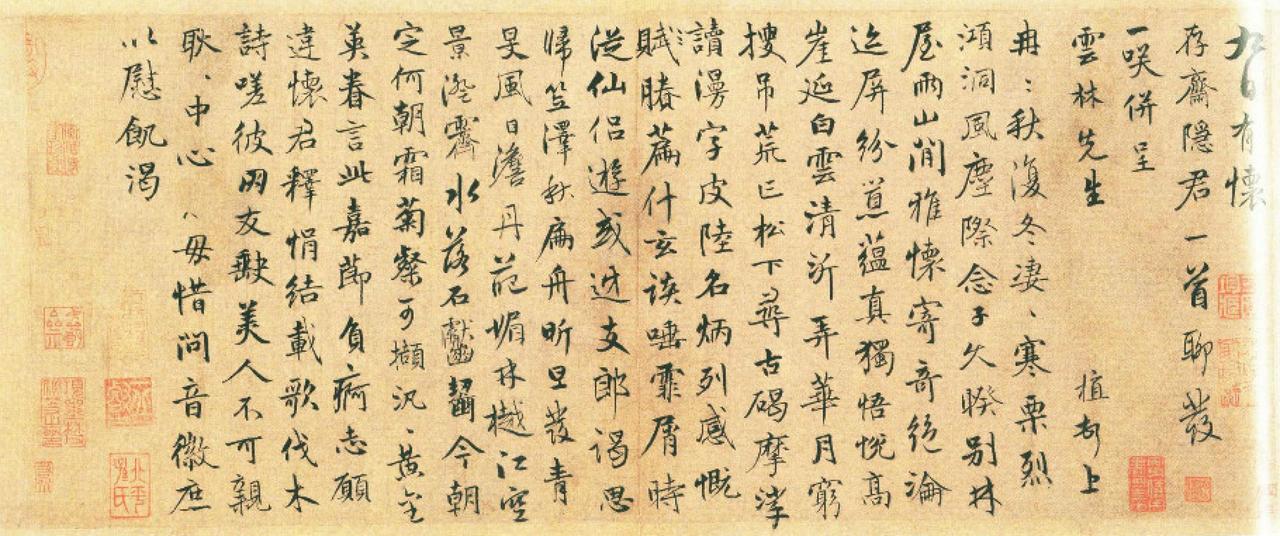 九日有懷
存齋隱君一首聊發
一咲併呈
雲林先生 植頓上
冉冉秋復冬凄、寒栗烈
澒洞風塵際念子久暌別林
屋兩山間雅懷寄奇絕淪
迄屏紛蕴真獨悟悅高
崖延白雲清泝弄華月窮
搜吊荒丘松下尋古碣摩挲
讀漫字皮陸名炳列感慨
賦勝篇什玄談唾霏屑時
從仙侶遊或迭支郎謁思
歸笠澤秋扁舟昕旦發青
旻風日澹丹葩媚林樾江空
景澄霽水落石齧今朝
定何朝霜菊粲可擷汎、黃金
英眷言此嘉節負痾志願
違懷君釋悁結載歌伐木
詩嗟彼罔友缺美人不可親
耿、中心、毋惜問音徽庶
以慰飢渴